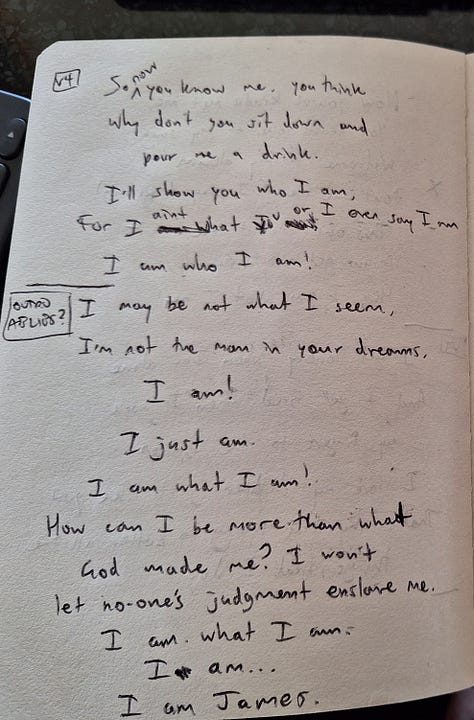 v4
So now you know me. you think
why don't you sit down and
pour me a drink.
I'll show you who I am,
For I aint what or I even say I am
I am who I am!
OUTRO
ADLIBS?
I may be not what I seem,
I'm not the man in your dreams,
I am!
I just am.
I am what I am!
How can I be more than what
God made me? I won't
let no-one's judgment enslave me.
I am what I am.
I am...
I am James.